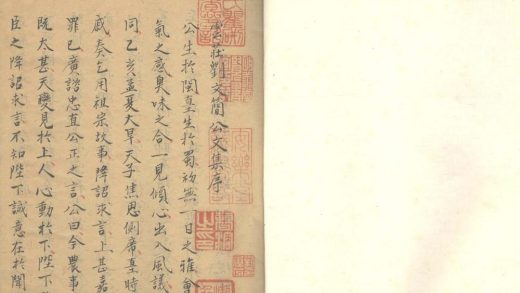 雲莊劉文簡公文集序
公生於閩皇生於蜀初無一日之雅會
氣之感臭味之合一見傾心出入風議
同乙亥孟夏大旱天子焦思側席皇時
感奏乞用祖宗故事降詔求言上甚嘉
罪已廣諮忠直公正之言公曰今農事
既太甚天變見於上人心動於下陛下
臣之降詔求言不知陛下誠意在於聞